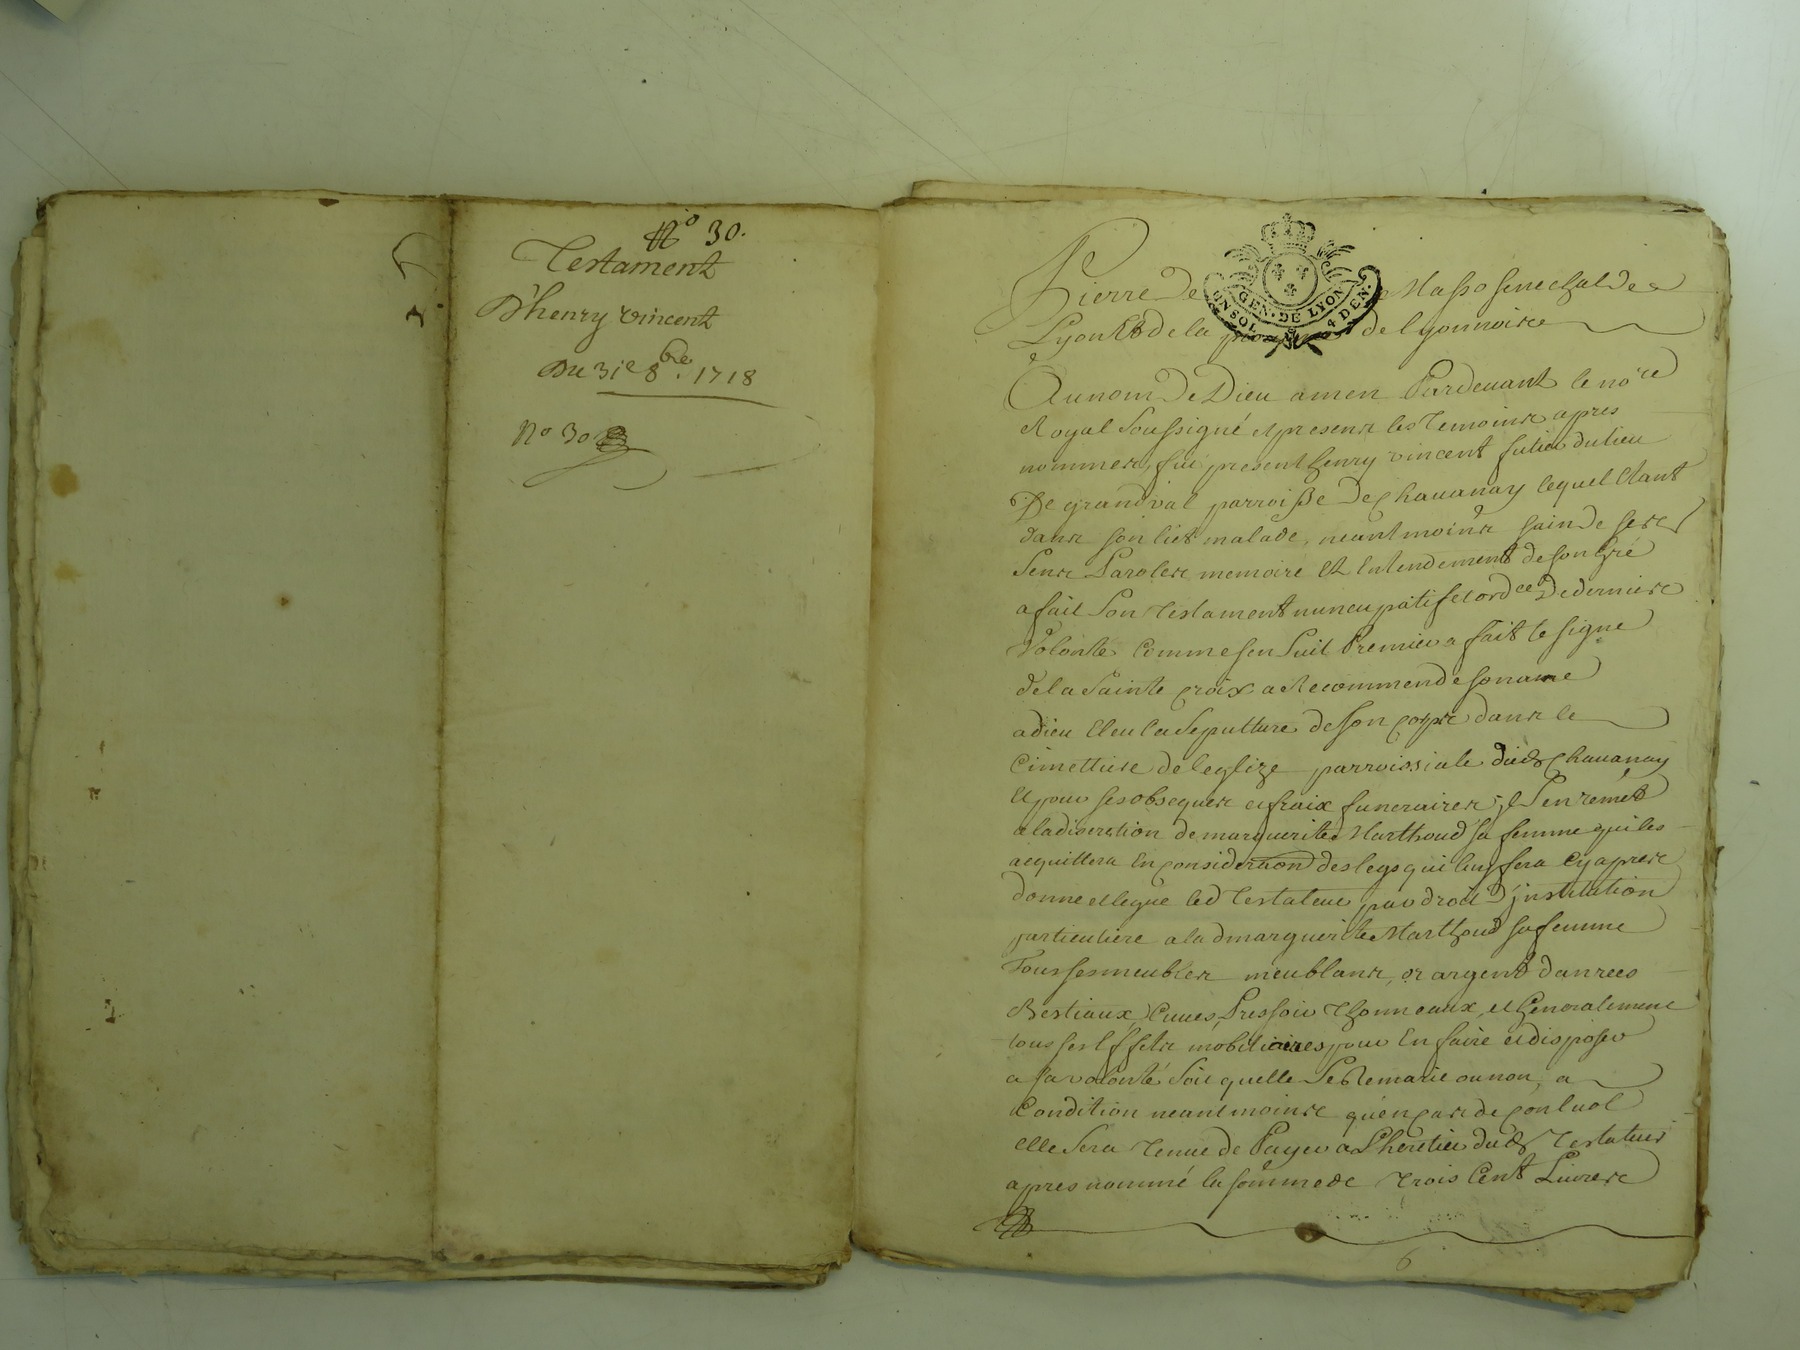 No 30.
Testament
D'henry vincent
Du 31e 8bre. 1718
No 30
Pierre de Masso senechal de
Lyon Et de la province de lyonnoise
GEN. DE LYON
UN SOL 4 DEN.
Au nom De Dieu amen Pardeuant le nore
Royal Soussigné et presens les temoins apres
nommes, fut present henry vincent filieu du lieu
De grandval parroisse de Chauanay lequel Etant
dans son lict malade, neantmoins sain de ses
Sens Paroles memoire Et Entendement de son Gré
a fait Son testament nuncupatif et ordce De derniere
Volonté Comme sen Suit Premier a fait le signe
de la Sainte Croix a Recommende son ame
a dieu Eleu la Sepulture de Son Corps dans le
Cimettiere de leglize parroissiale dud Chauanay
Et pour ses obseques et fraix funeraires il Sen remet
a la discretion de marguerite Marthoud sa femme qui les
acquittera En Consideration des legs qui luy sera Cy apres
donne et legue led Testateur par droit D'institution
particuliere a lad marguerite Marthoud sa femme
Tous ses meubles meublans, or argent danrees
Bestiaux, Cuues, Pressoir Thonneaux, et Generalement
tous ses Effets mobiliaires pour En faire et disposer
a sa volonté Soit quelle Se Remarie ou non, a
Condition neantmoins qu'en Cas de Conuol
elle Sera Tenue de Payer a Lheritier dud Testateur
apres nommé la somme de Trois Cent Liures
6